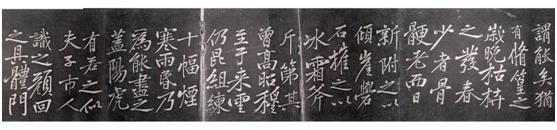 謂能矣猶
有脩篁之
歲晚枯枿
之發春
少者骨
骾老而日
新附之以
傾崖礐
石摧之以
冰霜斧
斤第其
曾高昭穆
至于來雲
仍昆組練
十幅煙
寒雨春乃
為能盡之
蓋陽虎
有若之似
夫子市人
識之顏回
之具體門